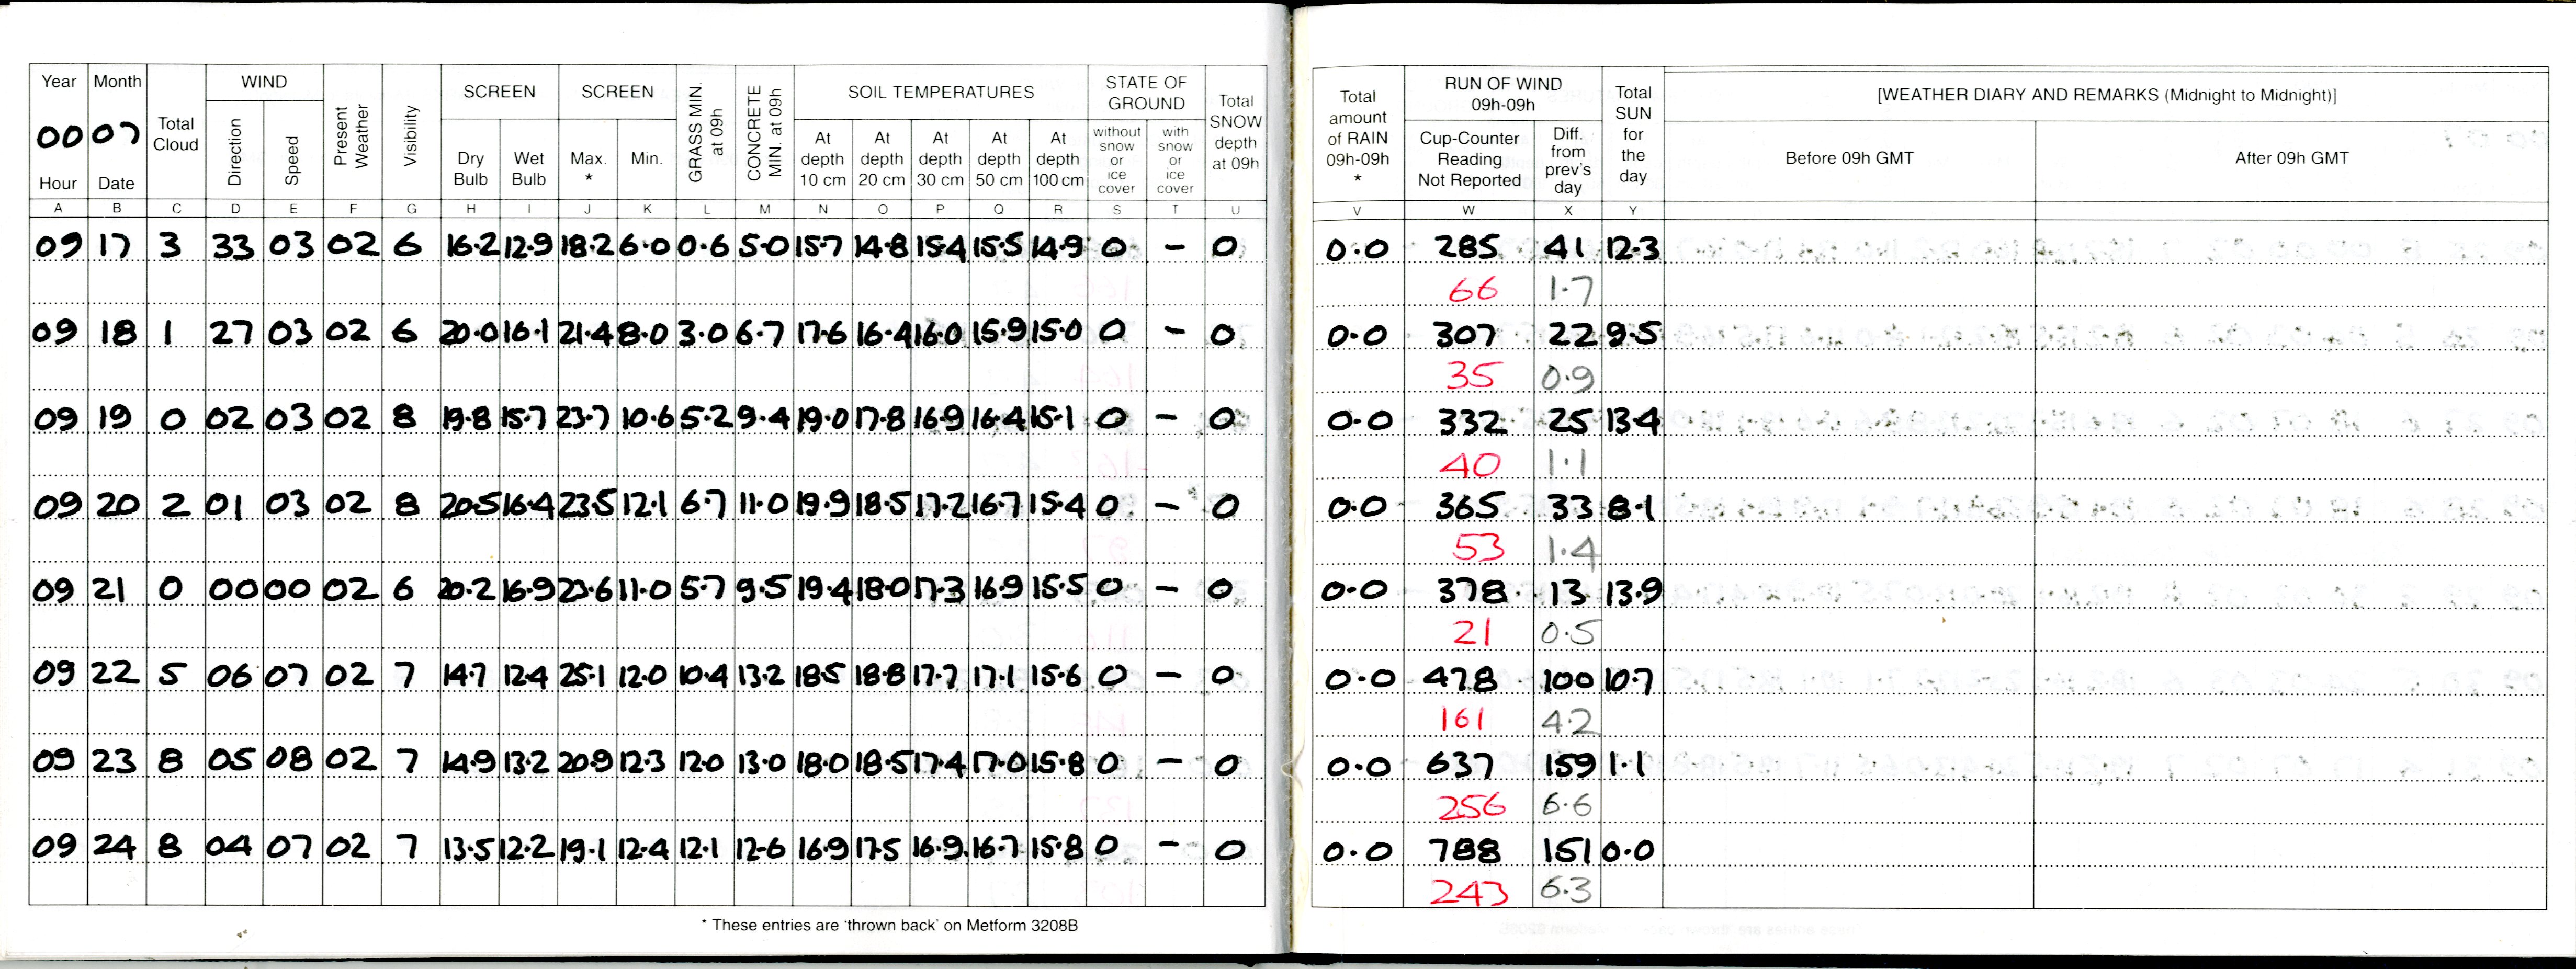 Year Month Total Cloud WIND Present Weather Visibility SCREEN SCREEN GRASS MIN. at 09h CONCRETE MIN. at 09h SOIL TEMPERATURES STATE OF GROUND Total SNOW depth at 09h Total amount of RAIN 09h-09h * RUN OF WIND 09h-09h Total SUN for the day [WEATHER DIARY AND REMARKS (Midnight to Midnight)]
00 07 Direction Speed Dry Bulb Wet Bulb Max. * Min. At depth 10 cm At depth 20 cm At depth 30 cm At depth 50 cm At depth 100 cm without snow or ice cover with snow or ice cover Cup-Counter Reading Not Reported Diff. from prev's day Before 09h GMT After 09h GMT
Hour Date
A B C D E F G H I J K L M N O P Q R S T U V W X Y
09 17 3 33 03 02 6 16.2 12.9 18.2 6.0 0.6 5.0 15.7 14.8 15.4 15.5 14.9 0 - 0 0.0 285 41 12.3
66 1.7
09 18 1 27 03 02 6 20.0 16.1 21.4 8.0 3.0 6.7 17.6 16.4 16.0 15.9 15.0 0 - 0 0.0 307 22 9.5
35 0.9
09 19 0 02 03 02 8 19.8 15.7 23.7 10.6 5.2 9.4 19.0 17.8 16.9 16.4 15.1 0 - 0 0.0 332 25 13.4
40 1.1
09 20 2 01 03 02 8 20.5 16.4 23.5 12.1 6.7 11.0 19.9 18.5 17.2 16.7 15.4 0 - 0 0.0 365 33 8.1
53 1.4
09 21 0 00 00 02 6 20.2 16.9 23.6 11.0 5.7 9.5 19.4 18.0 17.3 16.9 15.5 0 - 0 0.0 378 13 13.9
21 0.5
09 22 5 06 07 02 7 14.7 12.4 25.1 12.0 10.4 13.2 18.5 18.8 17.7 17.1 15.6 0 - 0 0.0 478 100 10.7
161 4.2
09 23 8 05 08 02 7 14.9 13.2 20.9 12.3 12.0 13.0 18.0 18.5 17.4 17.0 15.8 0 - 0 0.0 637 159 1.1
256 6.6
09 24 8 04 07 02 7 13.5 12.2 19.1 12.4 12.1 12.6 16.9 17.5 16.9 16.7 15.8 0 - 0 0.0 788 151 0.0
243 6.3
* These entries are 'thrown back' on Metform 3208B